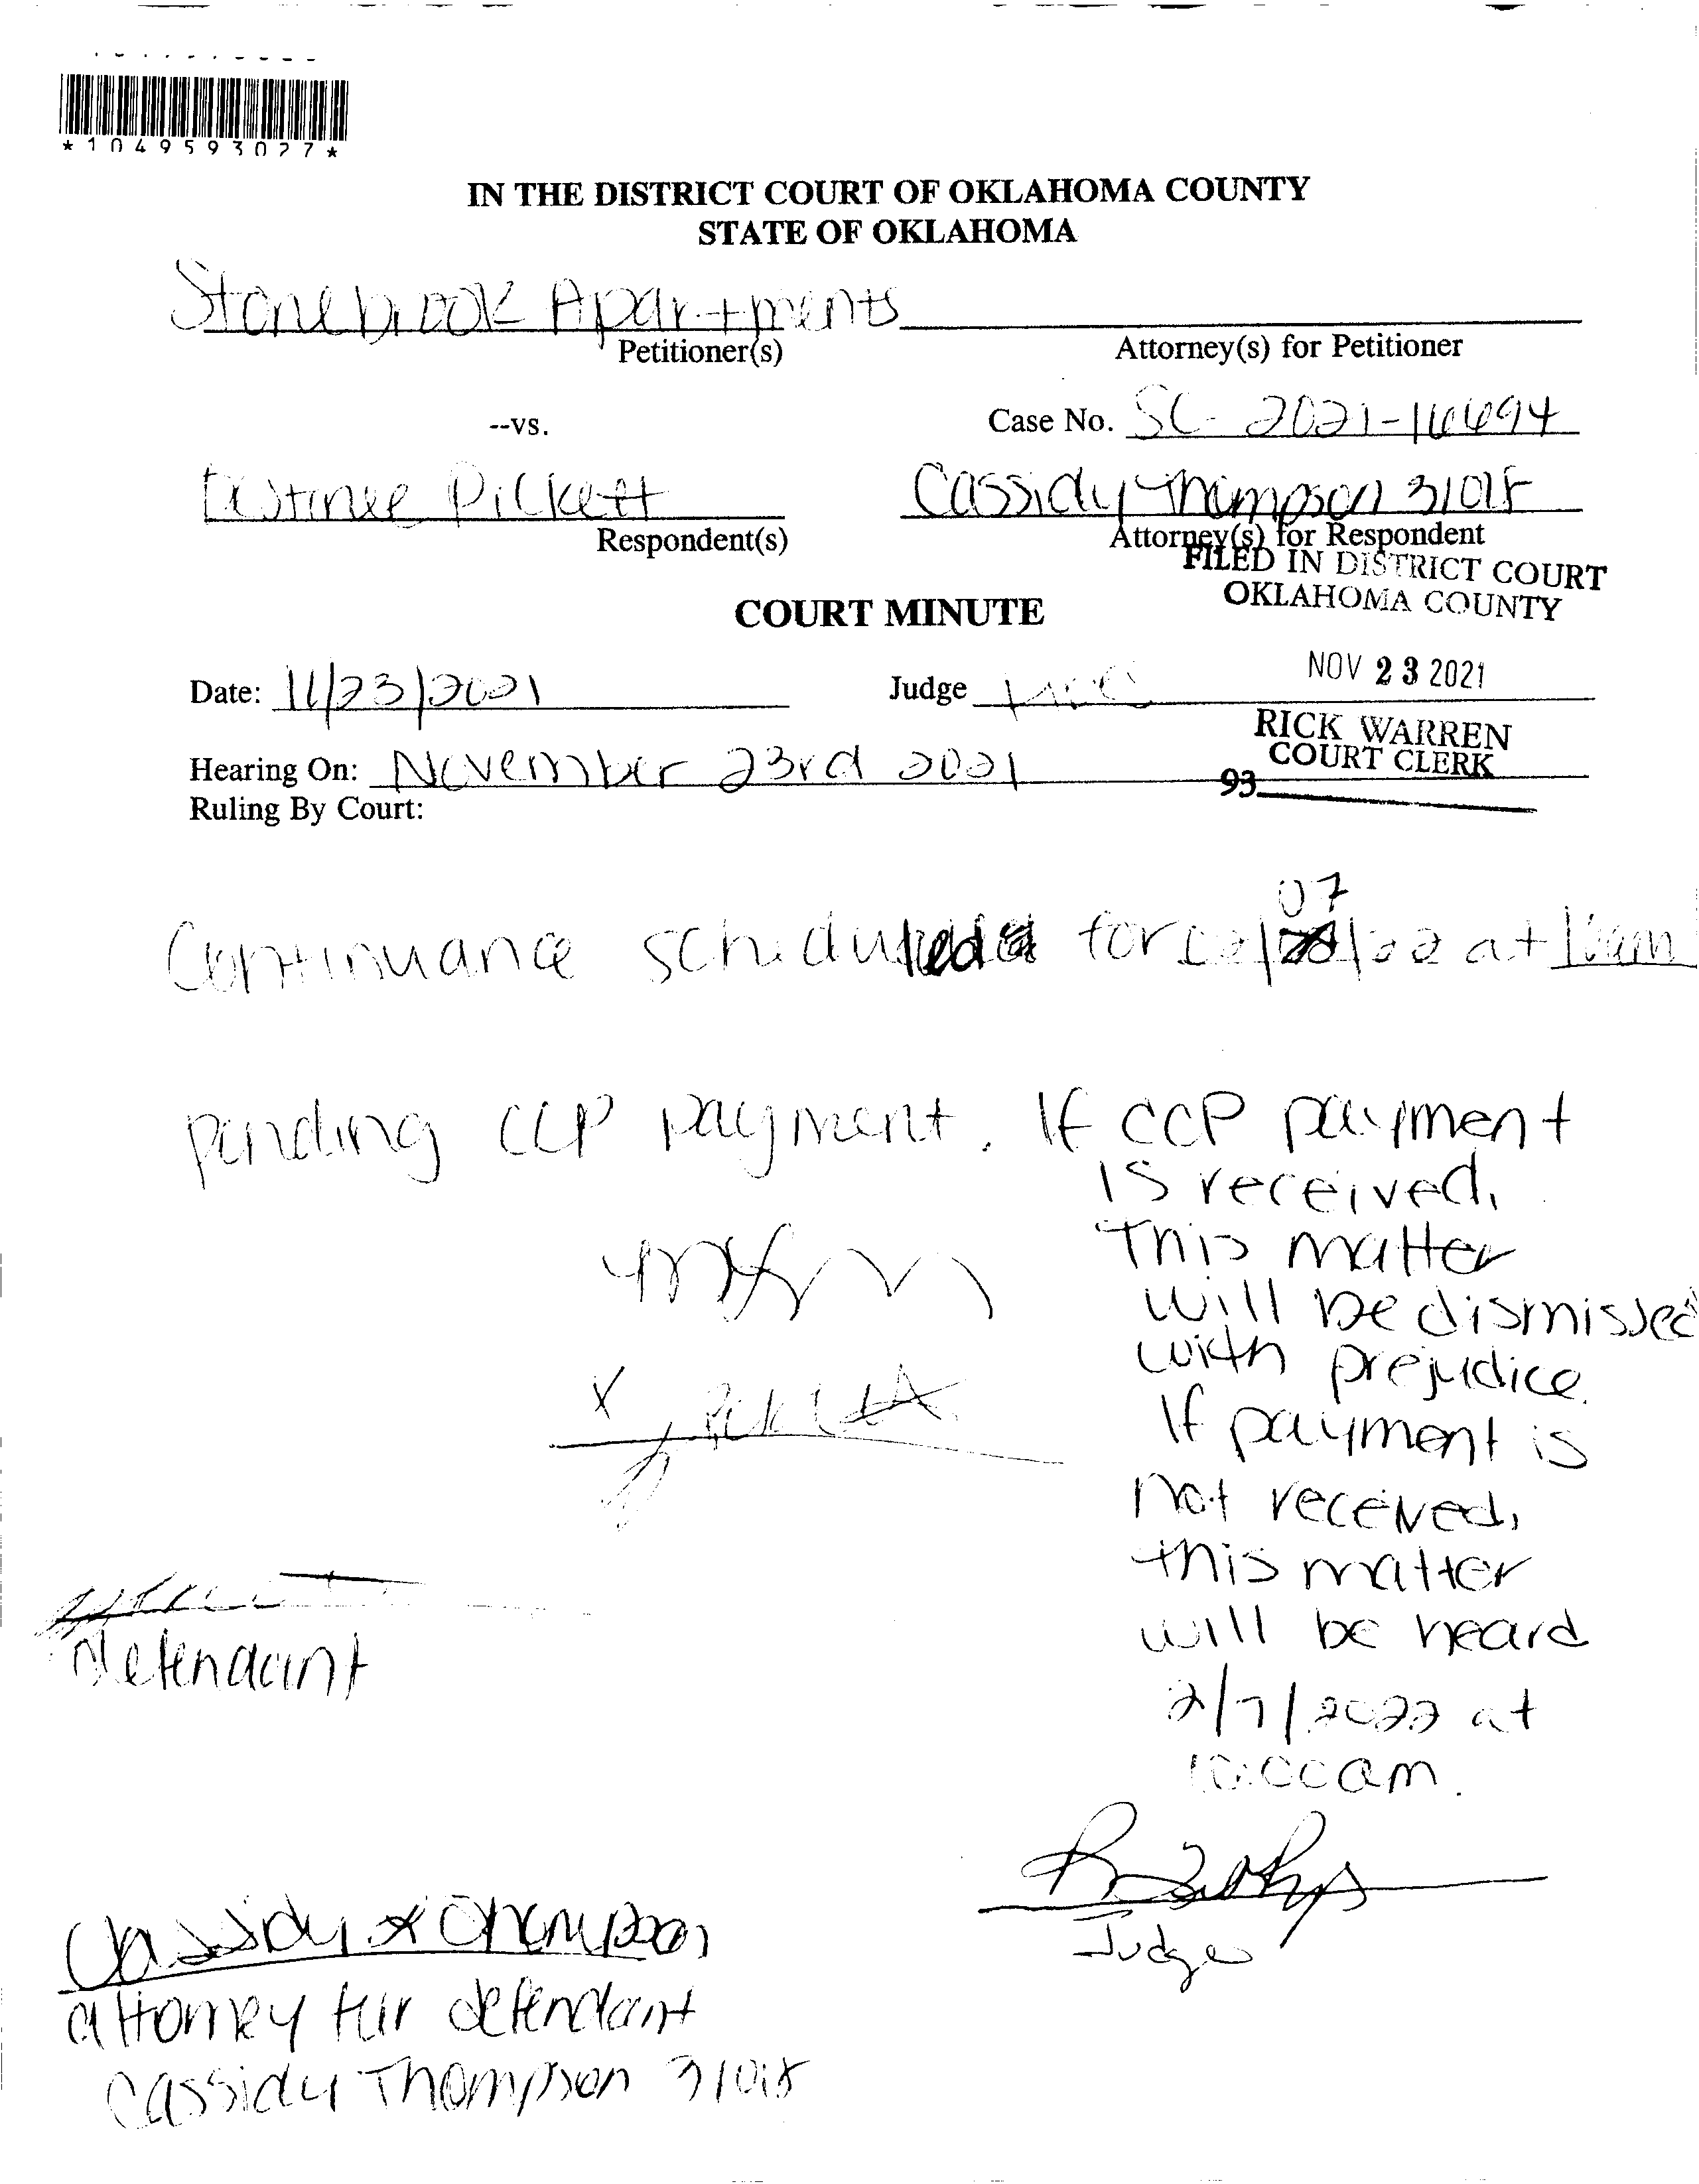 *1049593027*
IN THE DISTRICT COURT OF OKLAHOMA COUNTY
STATE OF OKLAHOMA
Stonebrook Apartments
Petitioner(s)
Attorney(s) for Petitioner
--vs.
Case No. SC-2021-16694
Destinee Pickett
Respondent(s)
Cassidy Thompson 31018
Attorney(s) for Respondent
FILED IN DISTRICT COURT
OKLAHOMA COUNTY
COURT MINUTE
NOV 23 2021
Date: 11/23/2021
Judge
RICK WARREN
COURT CLERK
Hearing On: November 23rd 2021
93
Ruling By Court:
07
Continuance scheduled for 02/ /22 at 10am
pending CCP payment. If CCP payment
is received,
this matter
will be dismissed
with prejudice.
If payment is
not received,
this matter
will be heard
2/7/2022 at
10:00am.
X Pickett
defendant
Judge
Cassidy Thompson
attorney for defendant
Cassidy Thompson 31018